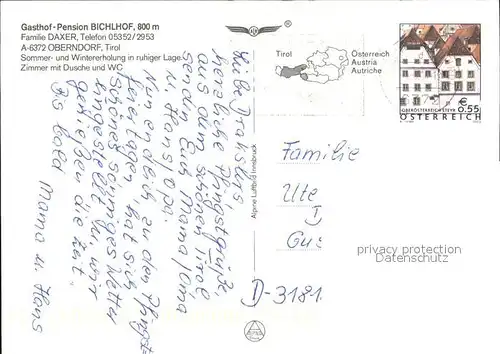 Gasthof-Pension BICHLHOF, 800 m
Familie DAXER, Telefon 05352/2953
A-6372 OBERNDORF, Tirol
Sommer- und Wintererholung in ruhiger Lage.
Zimmer mit Dusche und WC
herzliche Pfingstgrüße,
aus dem schönen Tirol
senden Euch Mama/Oma
u. Hans/Opa.
Nun endlich zu den Pfingst-
feiertagen hat sich
schönes sonniges Wetter
eingestellt u. wir
genießen die Zeit.
Bis bald
Mama u. Hans
Alpine Luftbild Innsbruck
®
Tirol
Österreich
Austria
Autriche
€
0.55
OBERÖSTERREICH STEYR
ÖSTERREICH
Familie
Ute
D-3181
privacy protection
Datenschutz